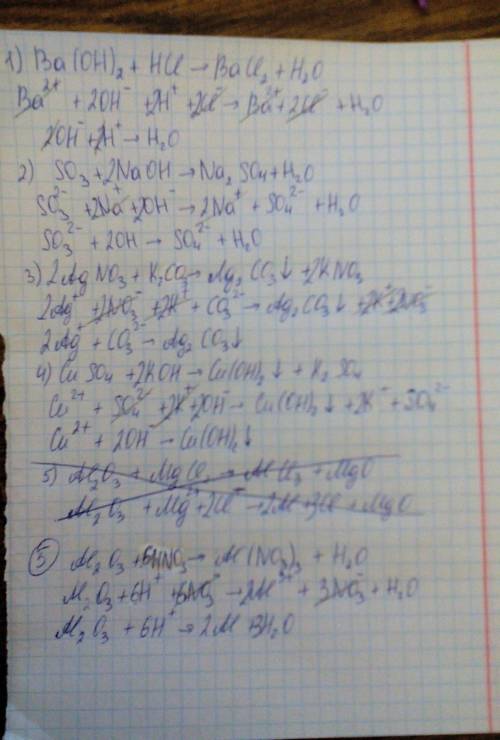 1) Ba(OH)₂ + HCl → BaCl₂ + H₂O
Ba²⁺ + 2OH⁻ + 2H⁺ + 2Cl⁻ → Ba²⁺ + 2Cl⁻ + H₂O
2OH⁻ + 2H⁺ → H₂O
2) SO₃ + 2NaOH → Na₂SO₄ + H₂O
SO₃²⁻ + 2Na⁺ + 2OH⁻ → 2Na⁺ + SO₄²⁻ + H₂O
SO₃²⁻ + 2OH → SO₄²⁻ + H₂O
3) 2AgNO₃ + K₂CO₃ → Ag₂CO₃↓ + 2KNO₃
2Ag⁺ + 2NO₃⁻ + 2K⁺ + CO₃²⁻ → Ag₂CO₃↓ + 2K⁺ + 2NO₃⁻
2Ag⁺ + CO₃²⁻ → Ag₂CO₃↓
4) CuSO₄ + 2KOH → Cu(OH)₂↓ + K₂SO₄
Cu²⁺ + SO₄²⁻ + 2K⁺ + 2OH⁻ → Cu(OH)₂↓ + 2K⁻ + SO₄²⁻
Cu²⁺ + 2OH⁻ → Cu(OH)₂↓
5) Al₂O₃ + MgCl₂ → AlCl₃ + MgO
Al₂O₃ + Mg²⁺ + 2Cl⁻ → 2Al + 3Cl + MgO
5 Al₂O₃ + 6HNO₃ → Al(NO₃)₃ + H₂O
Al₂O₃ + 6H⁺ + 6NO₃⁻ → 2Al³⁺ + 3NO₃⁻ + H₂O
Al₂O₃ + 6H⁺ → 2Al 3H₂O